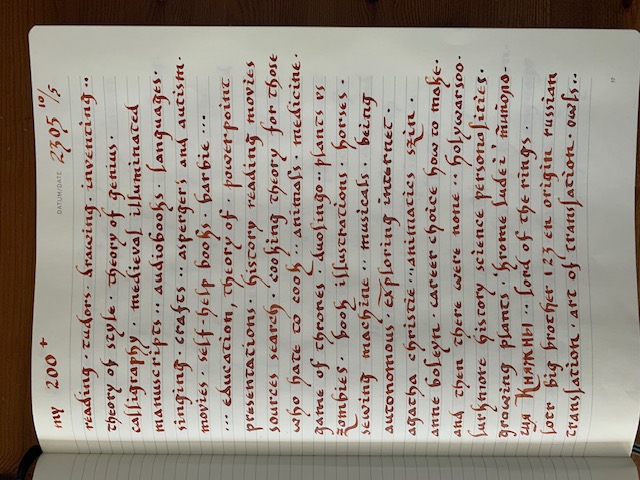 my 200+ DATUM/DATE 2305 10/5
reading · tudors · drawing · inventing ··
theory of style · theory of genius ·
calligraphy · medieval illuminated
manuscripts ·· audiobooks · languages ·
singing · crafts ·· asperger's and autism ·
movies · self-help books · barbie ···
··· education, theory of · powerpoint
presentations · history reading movies
sources search · cooking theory for those
who hate to cook ·· animals · medicine ·
game of thrones · duolingo ·· plants vs
zombies · book illustrations · horses ·
sewing machine ·· musicals · being
autonomous · exploring internet ·
agatha christie ··· animatics szin ·
anne boleyn · career choice how to make ·
and then there were none ·· holywarsoo ·
lurkmore history science personalities ·
growing plants · 'krome ludei' типоло-
гия Княжны ·· lord of the rings ·
lotr big brother 123 en origin russian
translation · art of translation · owls ··